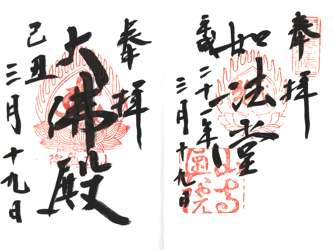 奉拝
如法堂
平成二十一年
三月十九日
奉拝
大佛殿
己丑
三月十九日